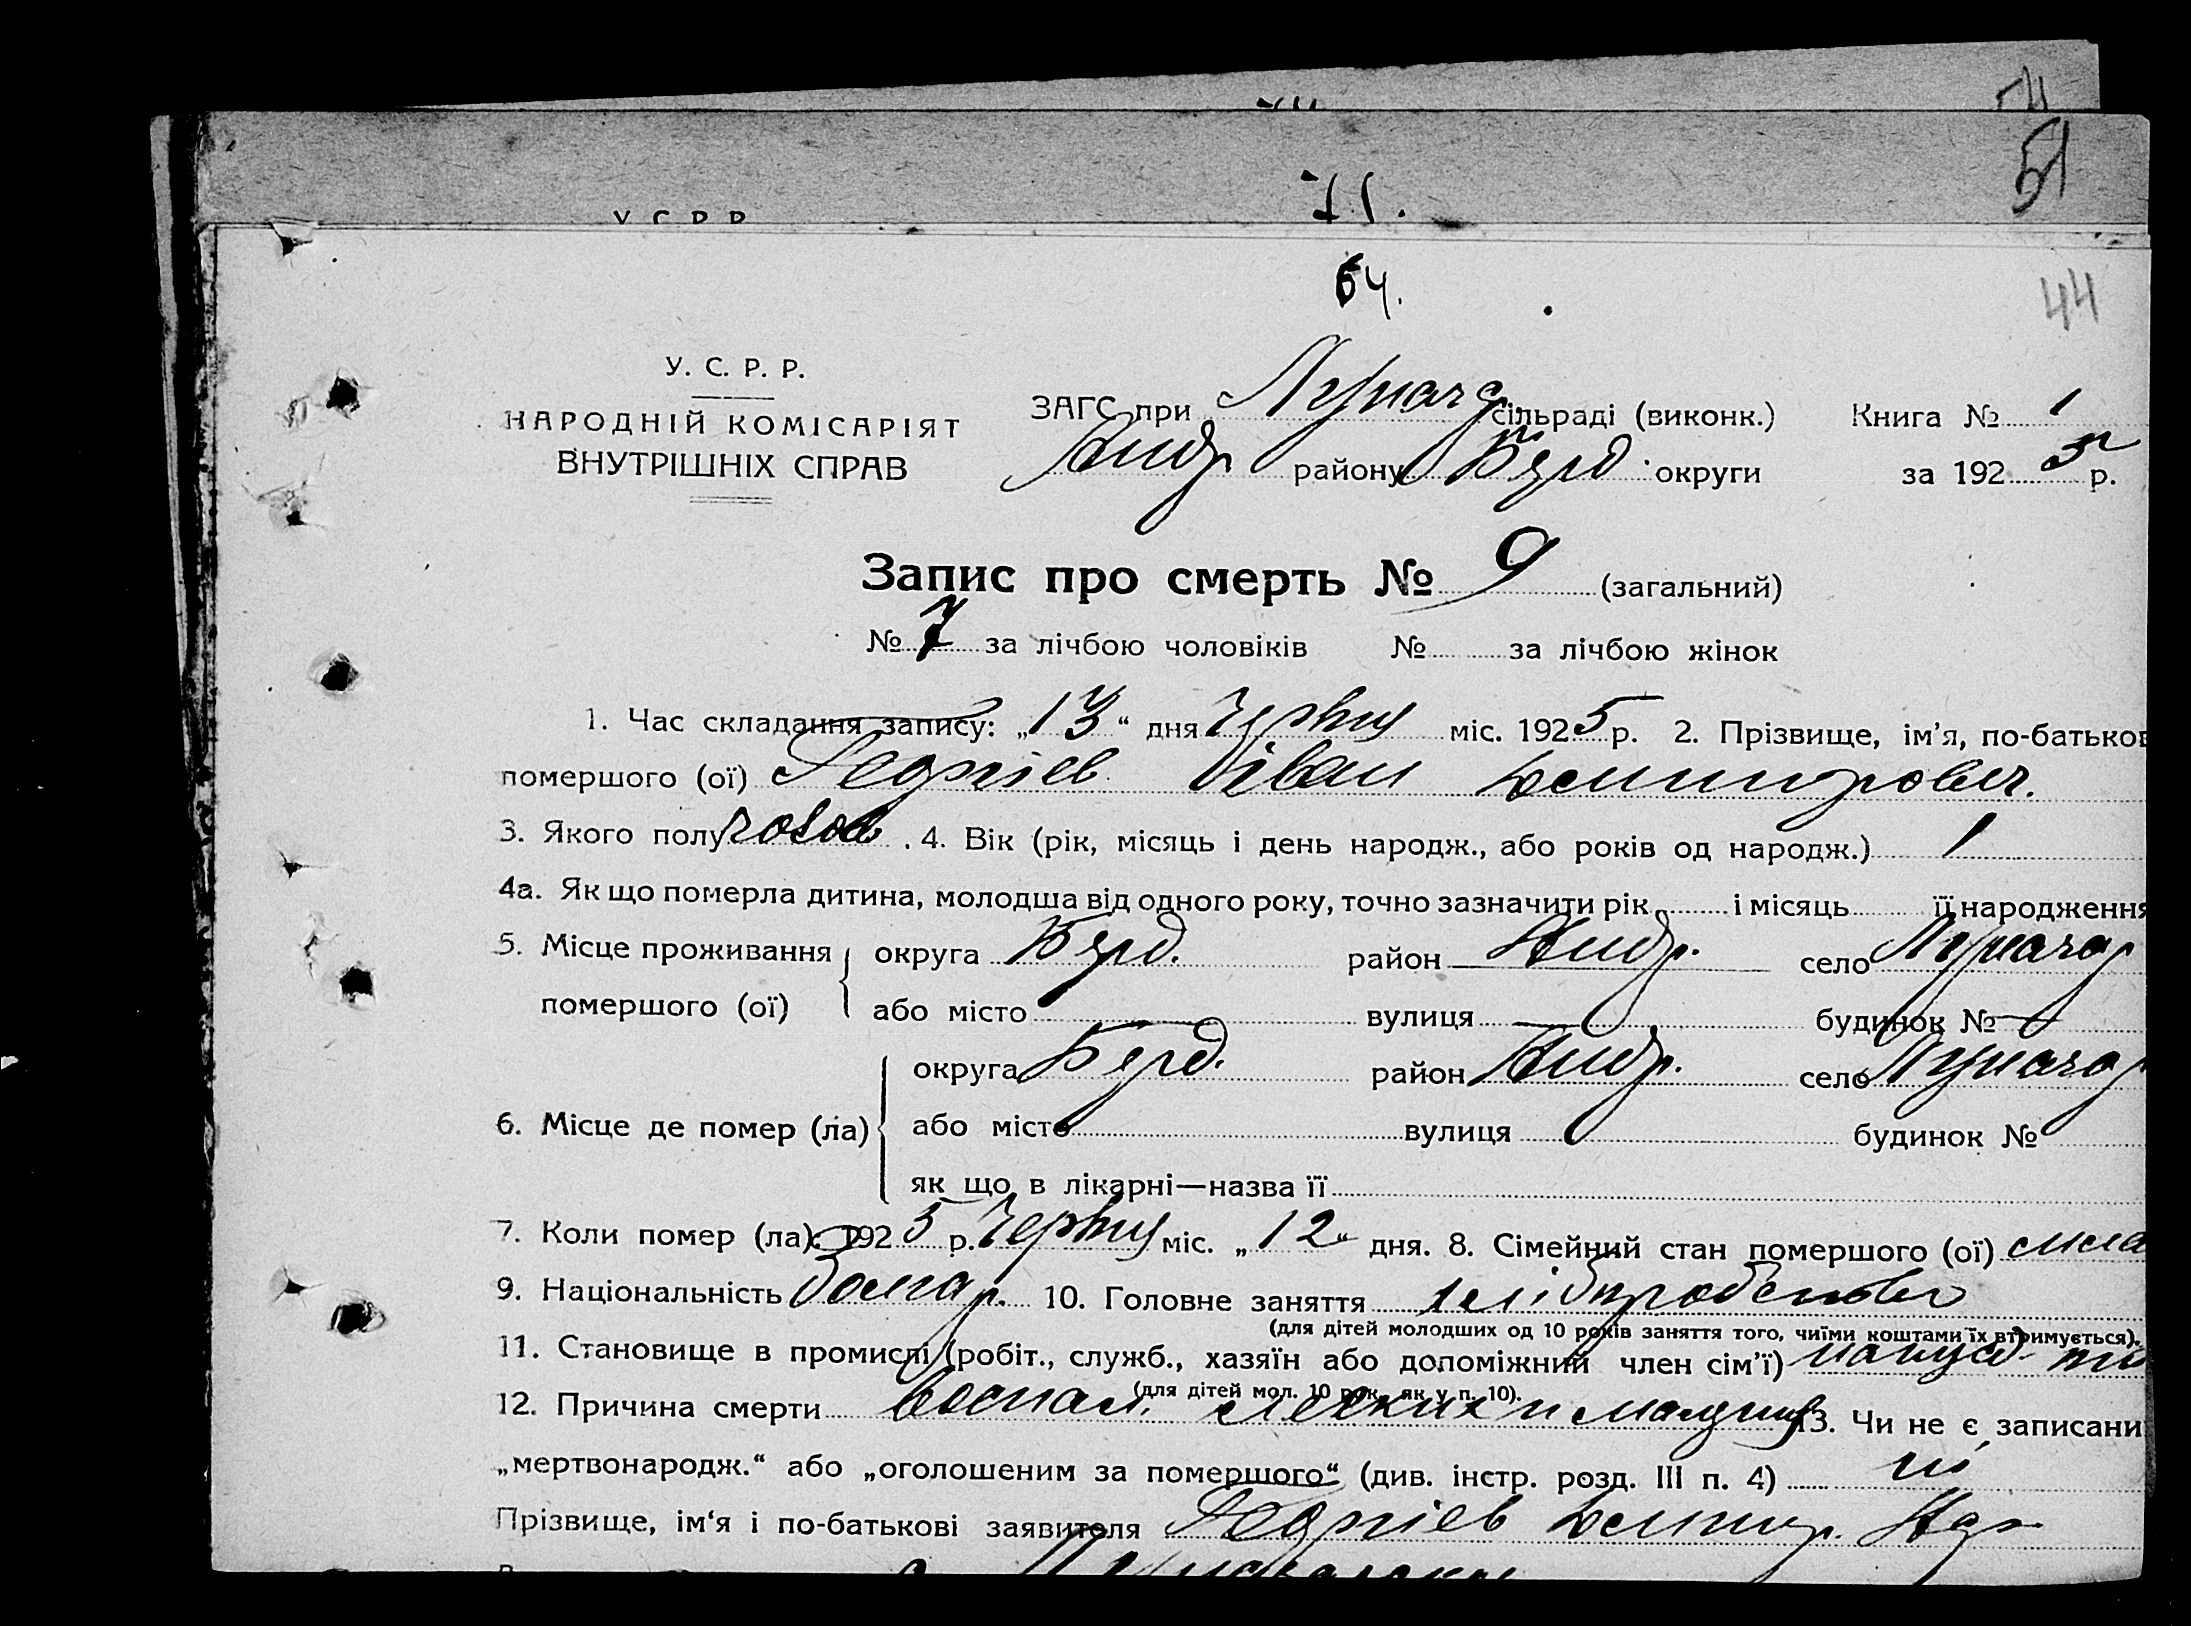 54
51
71.
У С Р Р
64.
44
У. С. Р. Р.
НАРОДНІЙ КОМІСАРІЯТ
ВНУТРІШНІХ СПРАВ
ЗАГС при Луначар сільраді (виконк.) Книга № 1
Андр району Берд округи за 1925 р.
Запис про смерть № 9 (загальний)
№ 7 за лічбою чоловіків № за лічбою жінок
1. Час складання запису: „13“ дня червня міс. 1925 р. 2. Прізвище, ім’я, по-батьков
помершого (ої) Іван
3. Якого полу чолов. 4. Вік (рік, місяць і день народж., або років од народж.) 1
4а. Як що померла дитина, молодша від одного року, точно зазначити рік і місяць її народження
5. Місце проживання округа Берд. район Андр. село Луначар
помершого (ої) або місто вулиця — будинок № —
округа Берд. район Андр. село Луначар
6. Місце де помер (ла) або місто вулиця будинок №
як що в лікарні—назва її
7. Коли помер (ла): 1925 р. червня міс. „12“ дня. 8. Сімейний стан помершого (ої)
9. Національність болгар. 10. Головне заняття хліборобство
(для дітей молодших од 10 років заняття того, чиїми коштами їх втримується).
11. Становище в промислі (робіт., служб., хазяїн або допоміжний член сім’ї)
(для дітей мол. 10 рок. як у п. 10).
12. Причина смерти воспал. легких 13. Чи не є записани
„мертвонародж.“ або „оголошеним за помершого“ (див. інстр. розд. III п. 4) ні
Прізвище, ім‘я і по-батькові заявителя